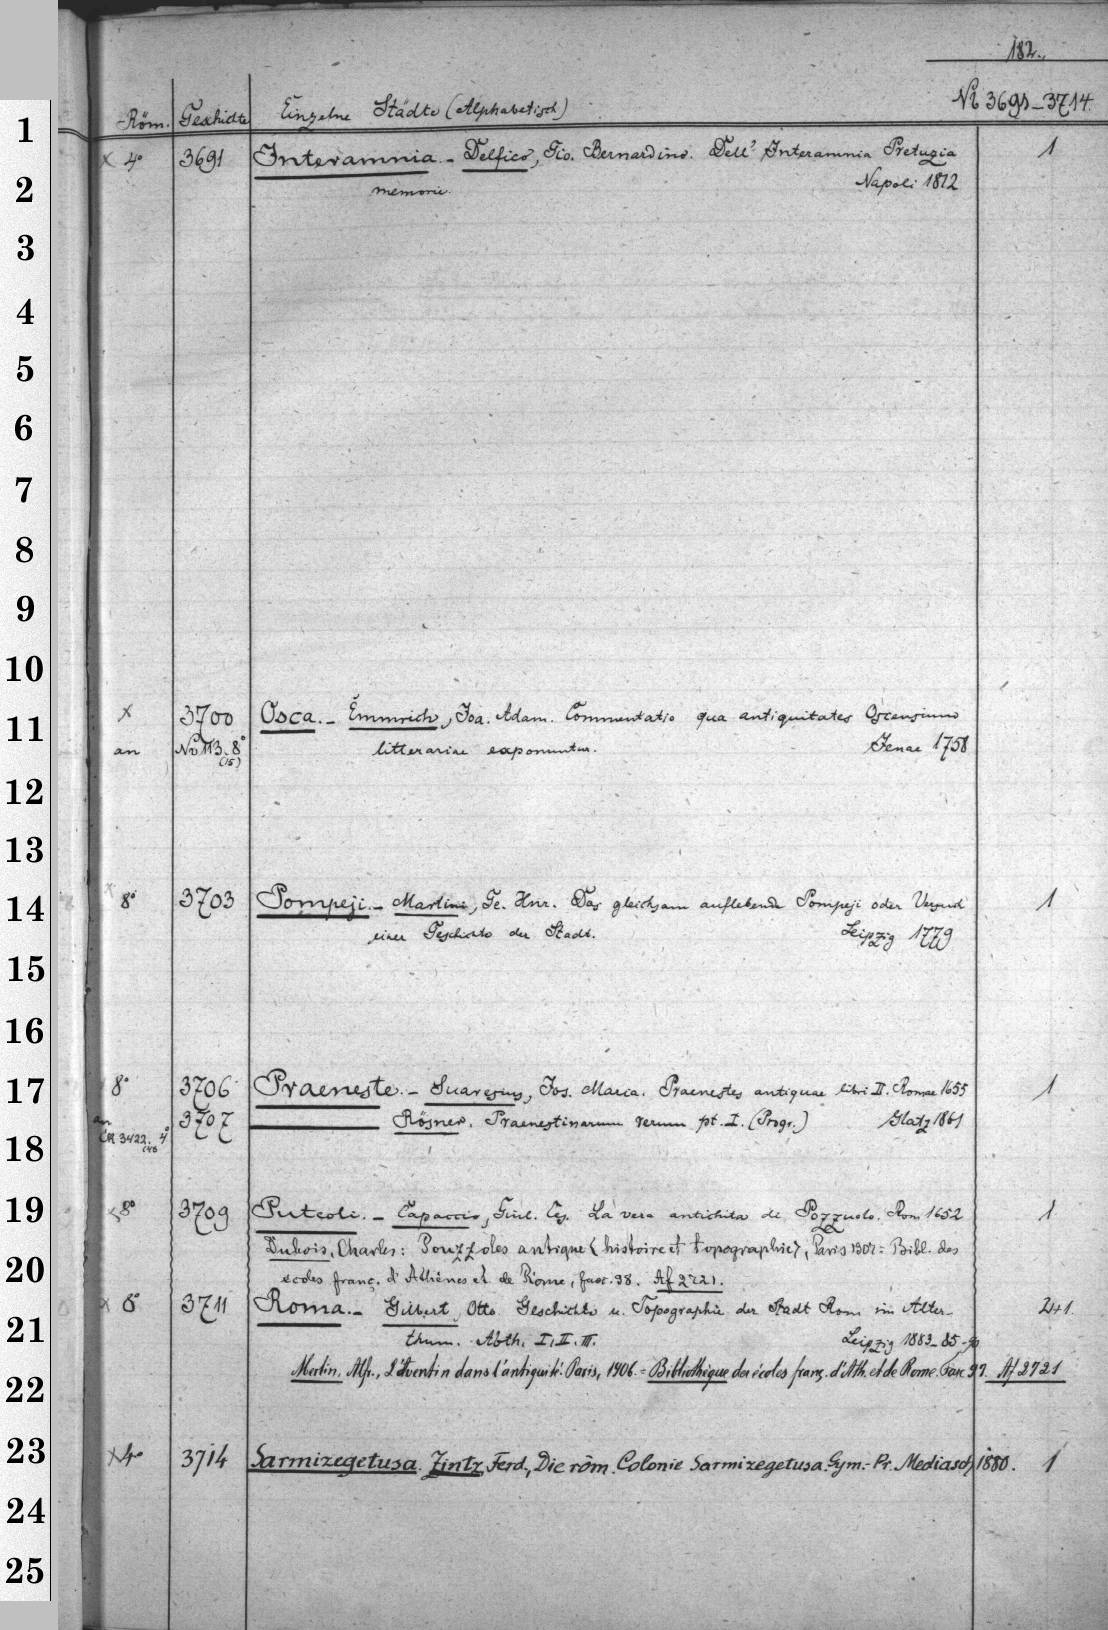 182.
Röm. Geschichte Einzelne Städte (Alphabetisch) Nr 3691–3714.
1
2
3
4
5
6
7
8
9
10
11
12
13
14
15
16
17
18
19
20
21
22
23
24
25
x 4° 3691 Interamnia. – Delfico, Gio. Bernardino. Dell' Interamnia Pretuzia 1
memorie. Napoli 1812
x 3700 Osca. – Emmrich, Joa. Adam. Commentatio qua antiquitates Oscensium
an Nr 113. 8° (15) litterariae exponuntur. Jenae 1758
x 8° 3703 Pompeji. – Martini, Ge. Hnr. Das gleichsam auflebende Pompeji oder Versuch 1
einer Geschichte der Stadt. Leipzig 1779
8° 3706 Praeneste. – Suaresius, Jos. Maria. Praenestes antiquae libri II. Romae 1655 1
an 3422. 4° 3707 Rösner. Praenestinarum rerum pt. I. (Progr.) Glatz 1861
x 8° 3709 Puteoli. – Capaccio, Giul. Ces. La vera antichita di Pozzuolo. Rom 1652 1
Dubois, Charles: Pouzzoles antique (histoire et topographie), Paris 1907 = Bibl. des
écoles franç. d'Athènes et de Rome, fasc. 98. Af 2721.
x 8° 3711 Roma. – Gilbert, Otto. Geschichte u. Topographie der Stadt Rom im Alter- 2+1.
thum. Abth. I, II. III. Leipzig 1883–85–90
Merlin, Alfr., L'Aventin dans l'antiquité. Paris, 1906. = Bibliothèque des écoles franç. d'Ath. et de Rome. Fasc 97. Af 2721
x 4° 3714 Sarmizegetusa. Zintz, Ferd., Die röm. Colonie Sarmizegetusa. Gym.- Pr. Mediasch, 1880. 1